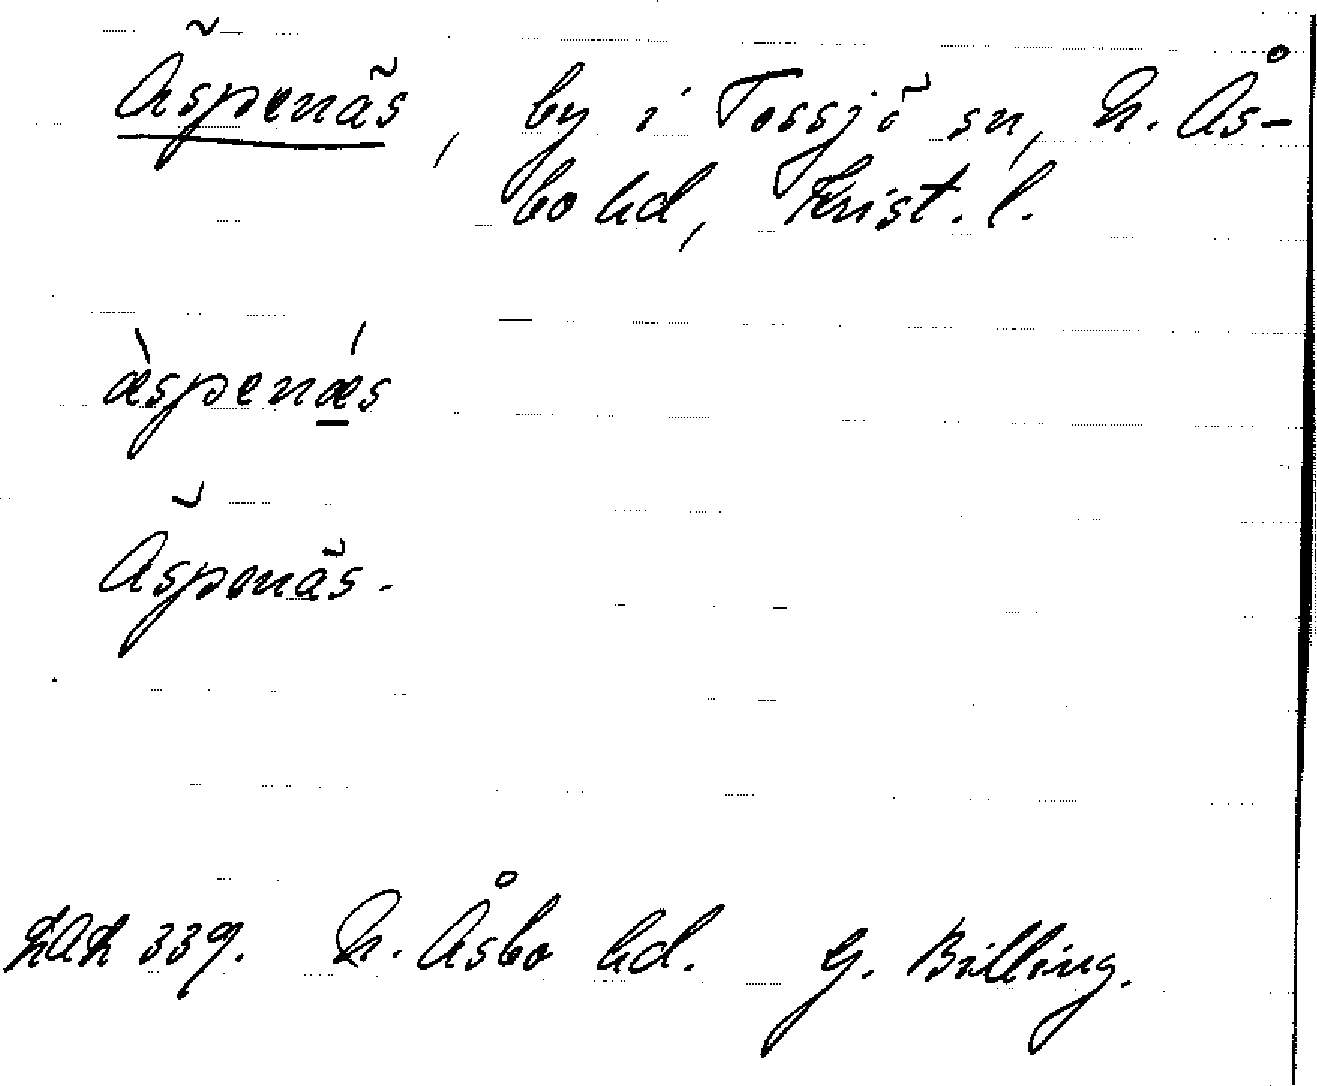 Äspenäs, by i Tossjö sn, N. Ås-
bo hd, Krist. l.
æ̀spenǽs
Äspenäs.
LAL 339. N. Åsbo hd. G. Billing.